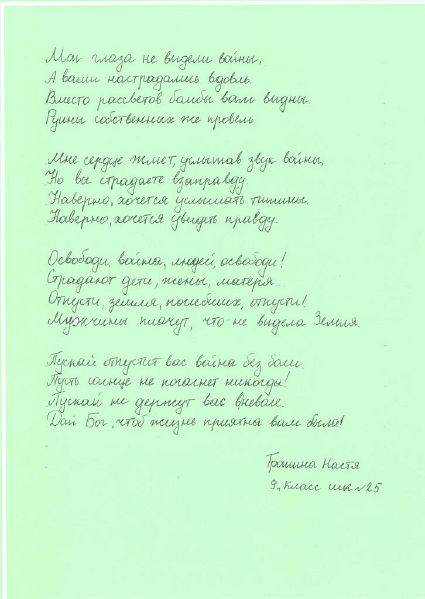 Мои глаза не видели войны,
А ваши настрадались вдовль.
Вместо рассветов бомбы вам видны.
Руины собственных же кровель.
Мне сердце жмет, услышав звук войны,
Но вы страдаете взаправду.
Наверно, хочется услышать тишины.
Наверно, хочется увидеть правду.
Освободи, война, людей, освободи!
Страдают дети, жены, матеря.
Отпусти, земля, погибших, отпусти!
Мужчины плачут, что не видела Земля.
Пускай отпустит вас война без боли.
Пусть солнце не погаснет никогда!
Пускай не держут вас вневоле.
Дай Бог, чтоб жизнь приятна вам была!
Настя
9 класс шк №25